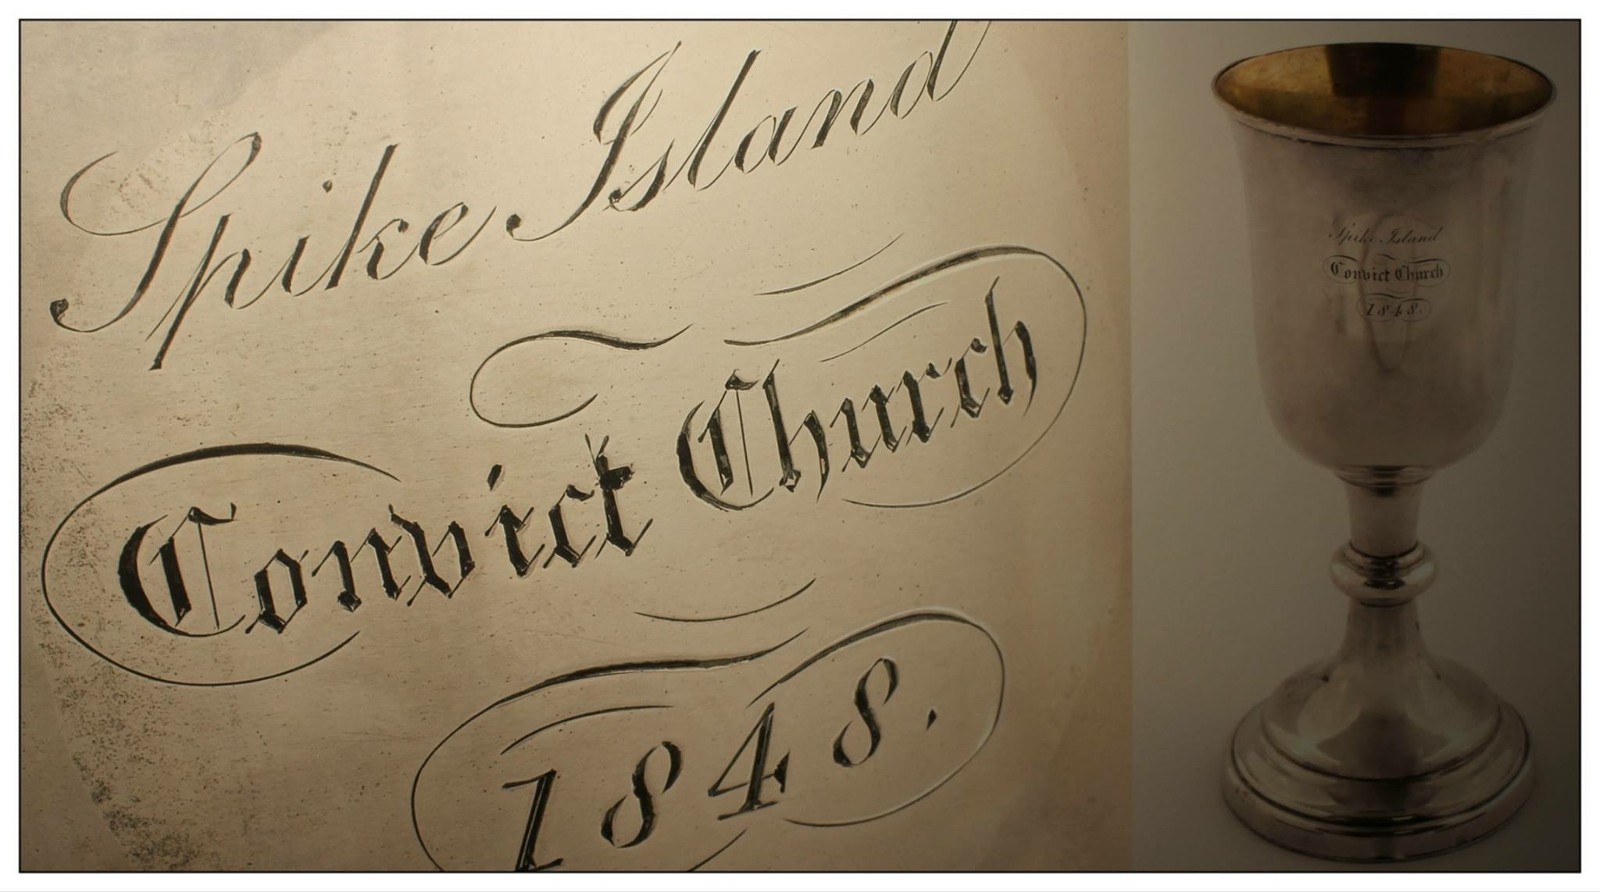 Spike Island
Convict Church
1848.
Spike Island
Convict Church
1848.